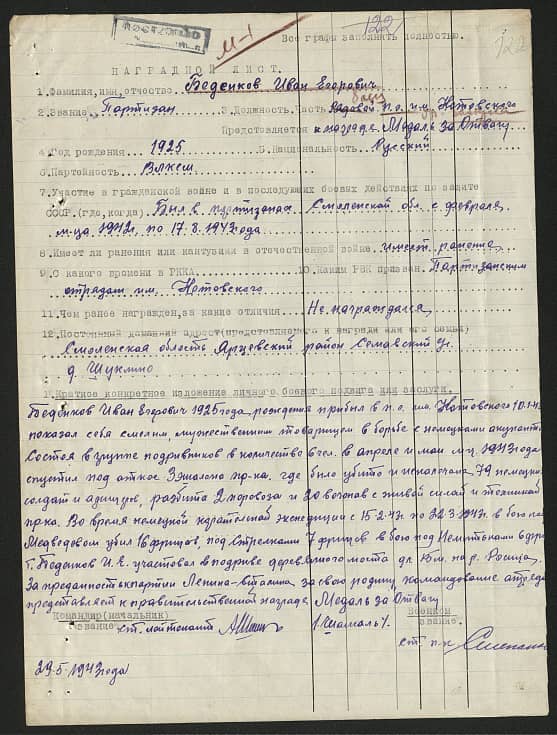 122
М-1
Все графы заполнять полностью.
122
НАГРАДНОЙ ЛИСТ.
1.Фамилия,имя,отчество Беденков Иван Егорович
боец
2.Звание Партизан 3.Должность,Часть Рядовой п.о. им. Котовского
Представляется к награде Медаль за Отвагу
4.Год рождения 1925 5.Национальность Русский
6.Партейность ВЛКСМ
7.Участие в гражданской войне и в последующих боевых действиях по защите
СССР.(где,когда) Был в партизанах Смоленской обл. с февраля
м-ца 1942г. по 17.8.1943года
8.Имеет ли ранения или кантузии в отечественной войне имеет ранение
9.С какого времени в РККА 10.Каким РВК призван Партизанским
отрядом им. Котовского
11.Чем ранее награжден,за какие отличия Не награждался
12.Постоянный домашний адрес(представляемого к награде или его семьи)
Смоленская область Ярцевский район
д. Шуклино
Краткое конкретное изложение личного боевого подвига или заслуги.
Беденков Иван Егорович 1925 года рождения прибыл в п.о. им. Котовского 10.1.43
показал себя смелым, мужественным товарищем в борьбе с немецкими
Состоя в группе подрывников в количестве 8 чел. в апреле и мае м-ц 1943 года
спустил под откос 3 эшелона пр-ка. где было убито и искалечено 79 немецких
солдат и офицеров, разбито 2 паровоза и 20 вагонов с живой силой и техникой
пр-ка. Во время немецкой карательной экспедиции с 15.2.43г. по 22.3.1943г. в бою под
Медведевом убил 16 фрицев, под Стрелками 7 фрицев в бою под
т. Беденков И.Е. участвовал в подрыве деревянного моста дл. 15м. на р.
За преданность к партии Ленина-Сталина за свою родину командование отряда
представляет к правительственной награде Медаль за Отвагу
Командир(начальник) Военком
звание. ст. лейтенант звание.
29.5.1943года